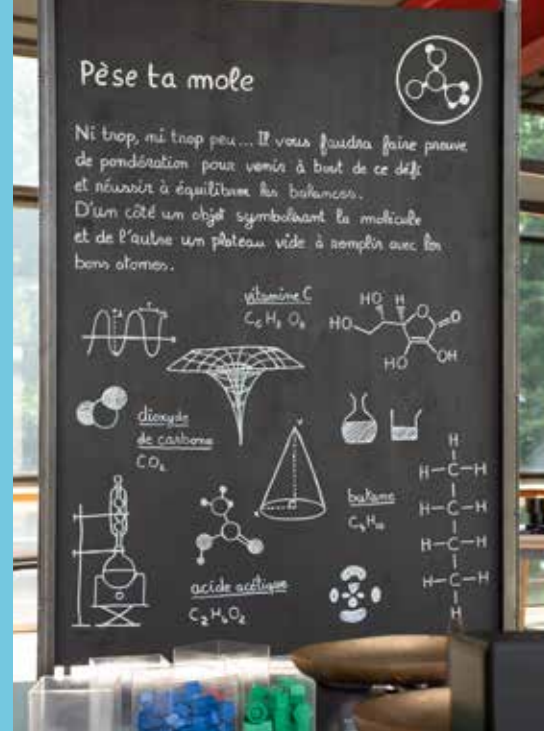 Pèse ta mole
Ni trop, ni trop peu... Il vous faudra faire preuve
de pondération pour venir à bout de ce défi
et réussir à équilibrer les balances.
D'un côté un objet symbolisant la molécule
et de l'autre un plateau vide à remplir avec les
bons atomes.
vitamine C
C₆H₈O₆
HO H
HO
O
O
HO
OH
dioxyde
de carbone
CO₂
butane
C₄H₁₀
H
H-C-H
H-C-H
H-C-H
H-C-H
H
acide acétique
C₂H₄O₂